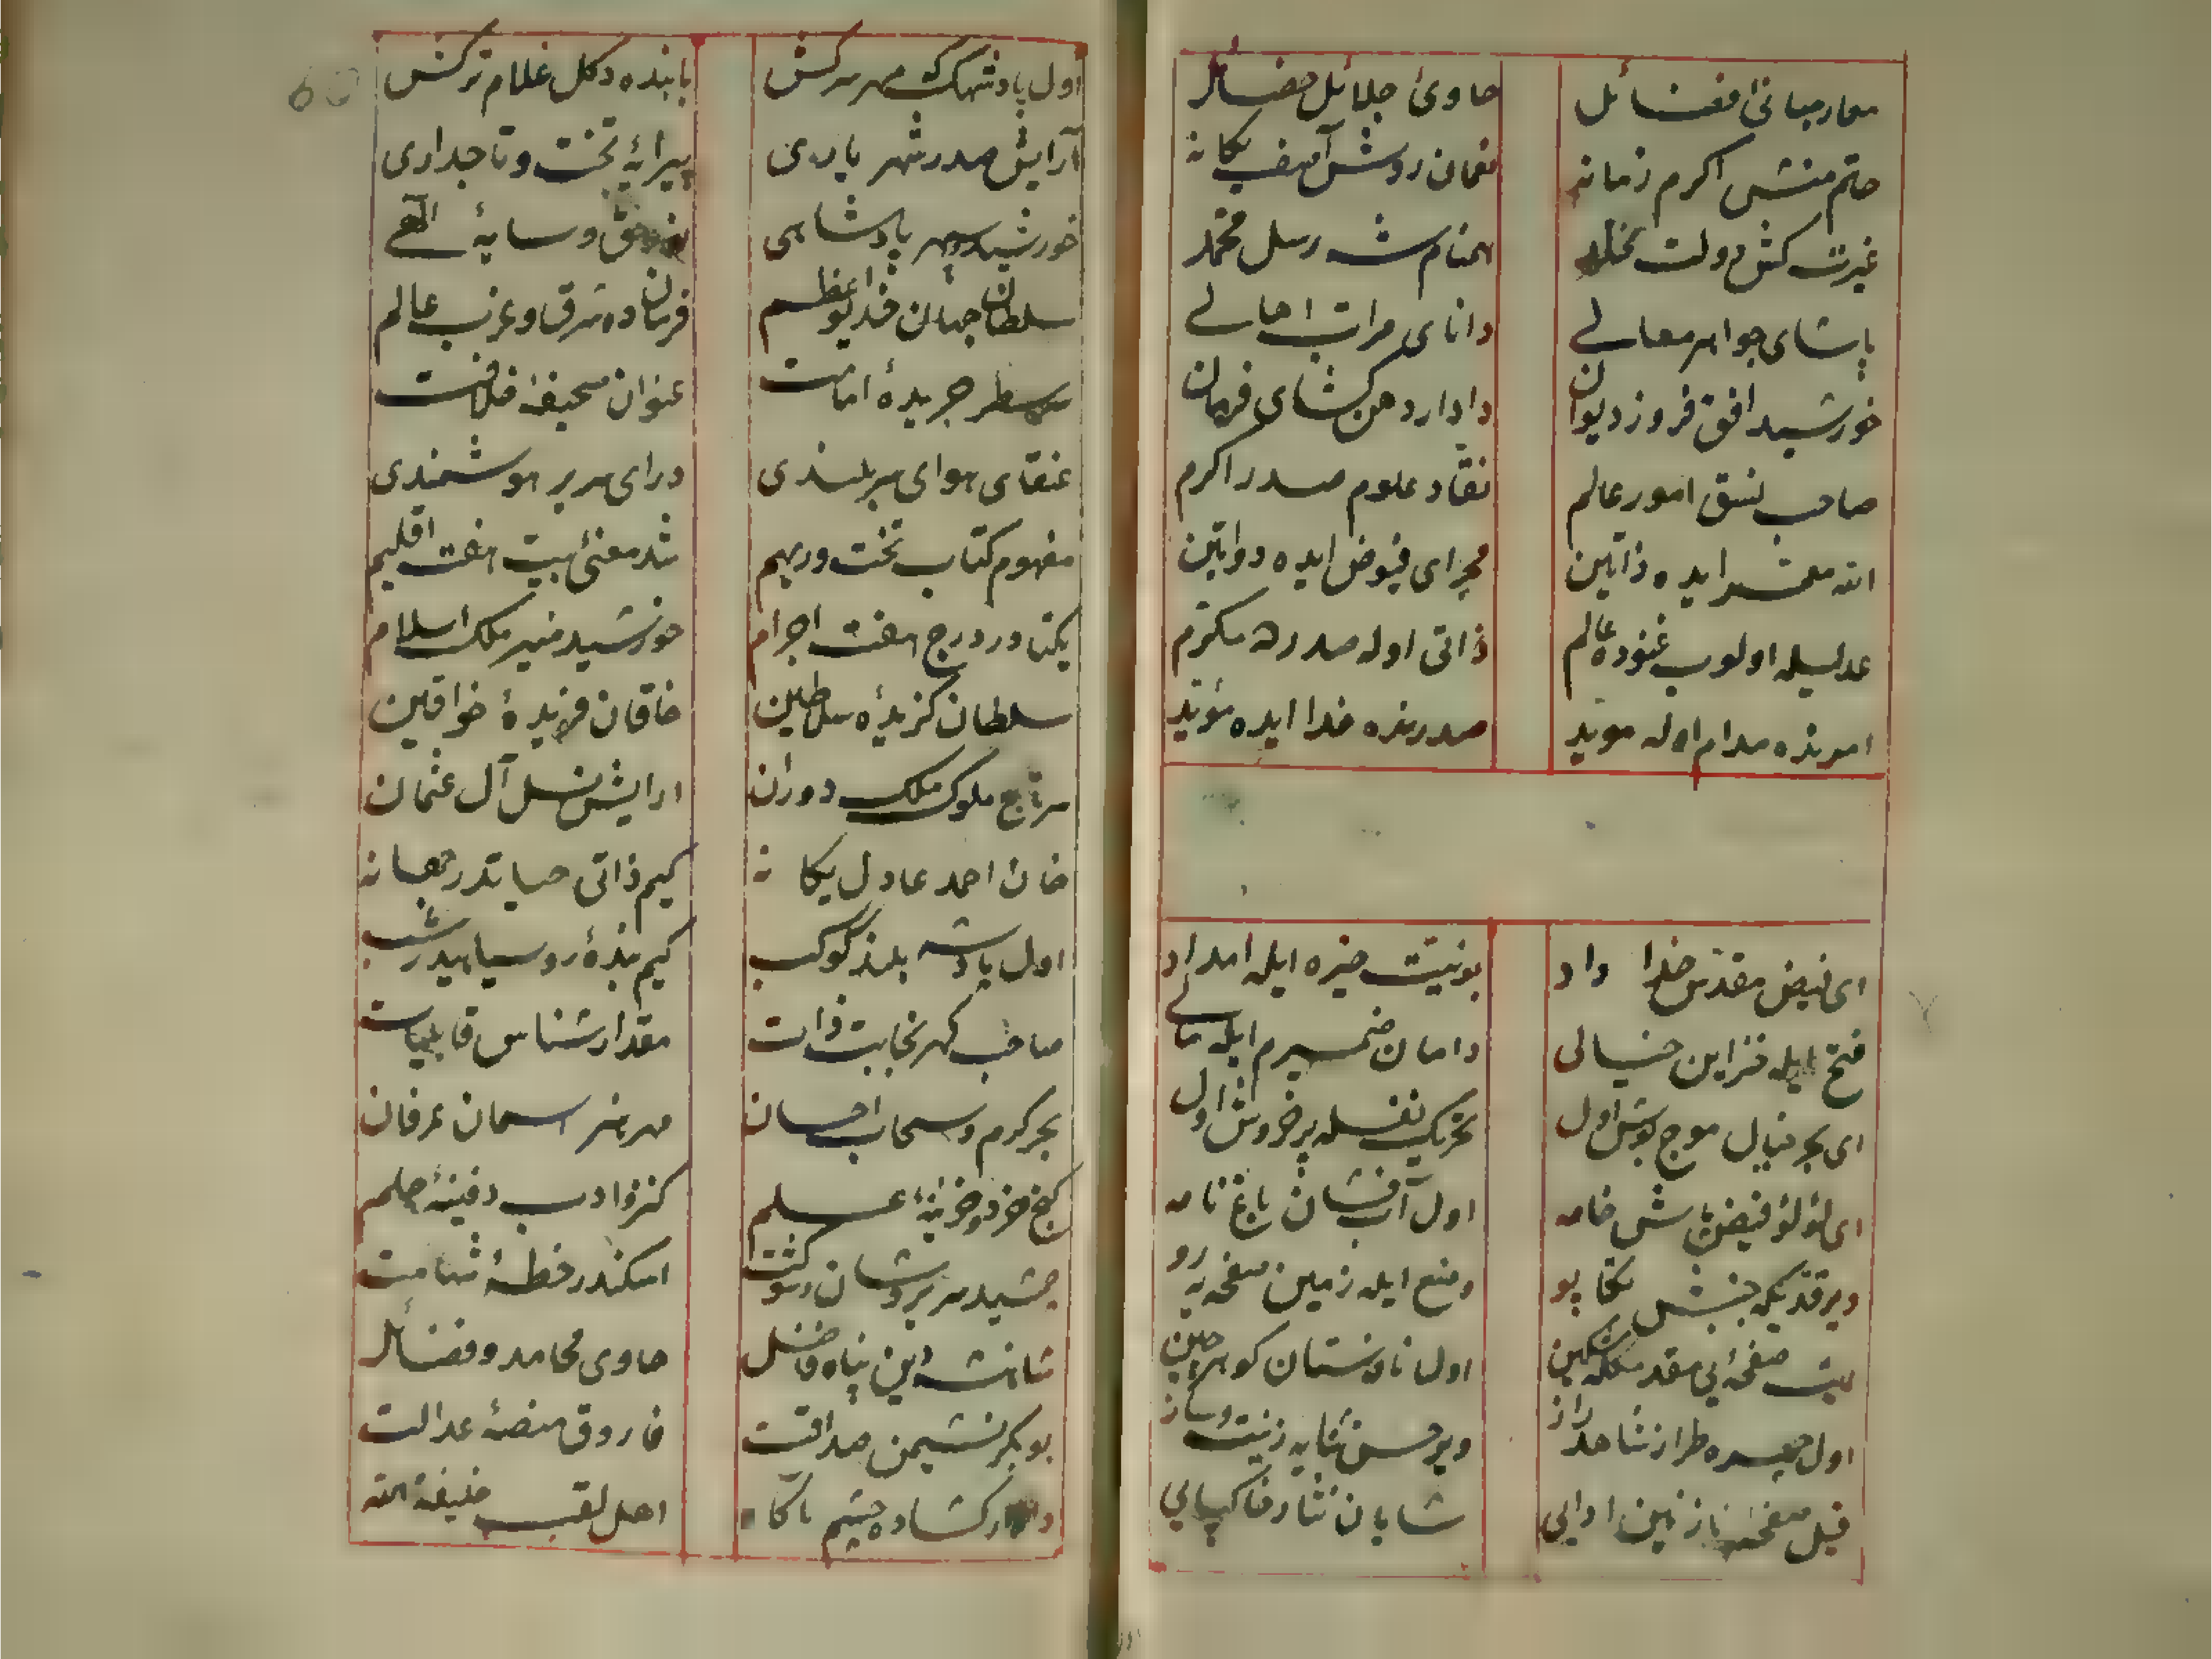 معمار مبانئ فضائل
حاوئ جلائل خصائل
حاتم منش اكرم زمانه
نعمان روش آصف يكانه
غيرت كش دولت مخلد
همنام شه رسل محمد
پاشاى جواهر معالى
داناى مراتب اهالى
خورشيد افق فروز ديوان
دادار دهن كشاى فرمان
صاحب نسق امور عالم
نقاد علوم صدر اكرم
الله ايده ذاتين
مجراى فيوض ايده دواتين
عدليله اولوب غنوده عالم
ذاتى اوله صدرده مكرم
امرنده مدام اوله مويد
صدرنده خدا ايده مؤبد
اى فيض مقدس خدا داد
بو نيت خيره ايله امداد
فتح ايله خزاين خيالى
دامان ضميرم ايله مالى
اى بحر خيال موج جوش اول
تحريك نفسله پر خروش اول
اى لؤلؤ فيض پاش خامه
اول آب فشان باغ نامه
وير قدرتكه جنبش تكاپو
وضع ايله زمين صفحه يه رو
صفحه يى مشكين
اول نادره ستان كوهر چين
اول چهره طراز شاهد راز
وير حسن ثنايه زينت وساز
قيل صفحه نازنين ادايى
شايان نثار خاكپايى
اول پادشهك كه مهر سركش
بابنده دكل غلام تركش
آرايش صدر شهر يارى
پيرايۀ تخت وتاجدارى
خورشيد سپهر پادشاهى
حق وسايۀ الهى
سلطان جهان خديو اعظم
فرمان ده شرق وغرب عالم
سر سطر جريدۀ امامت
عنوان صحيفۀ خلافت
عنقاى هواى سربلندى
داراى سرير هوشمندى
مفهوم كتاب تخت وديهيم
شد معنئ بيت هفت اقليم
يكتا در درج هفت اجرام
خورشيد منير ملك اسلام
سلطان كزيدۀ سلاطين
خاقان فريدۀ خواقين
سرتاج ملوك ملك دوران
ارايش نسل آل عثمان
خان احمد عادل يكانه
كيم ذاتى حياتدر جهانه
اول پادشه بلند كوكب
كيم بندۀ روسياهيدر شب
صاحب كهر نجابت ذات
مقدار شناس قابليات
بحر كرم وسحاب احسان
مهر هنر اسمان عرفان
كنج خرد وخزينۀ علم
كنز ادب دفينۀ حلم
جمشيد سرير شان وشوكت
اسكندر خطۀ شهامت
شاهنشه دين پناه فاضل
حاوى محامد وفضائل
بوبكر نشيمن صداقت
فاروق منصۀ عدالت
كشاده چشم اكاه
اهل لقب خليفة الله